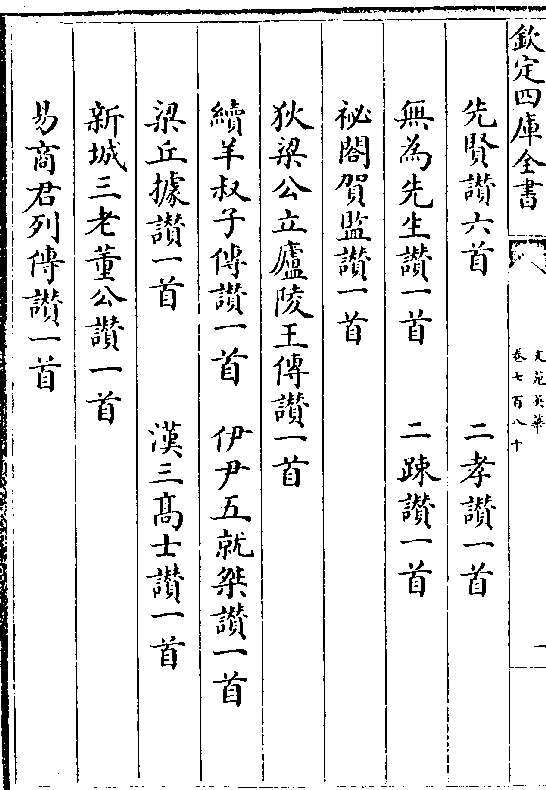 欽定四庫全書
文苑英華
卷七百八十
一
先賢讃六首 二孝讃一首
無為先生讃一首 二踈讃一首
祕閣賀監讃一首
狄梁公立廬陵王傳讃一首
續羊叔子傳讃一首 伊尹五就桀讃一首
梁丘據讃一首 漢三髙士讃一首
新城三老董公讃一首
易商君列傳讃一首